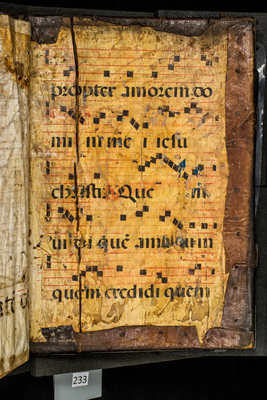 propter amorem do
mi ni me i iesu
christi Que vi
di quē amaui in
quem credidi quem
233